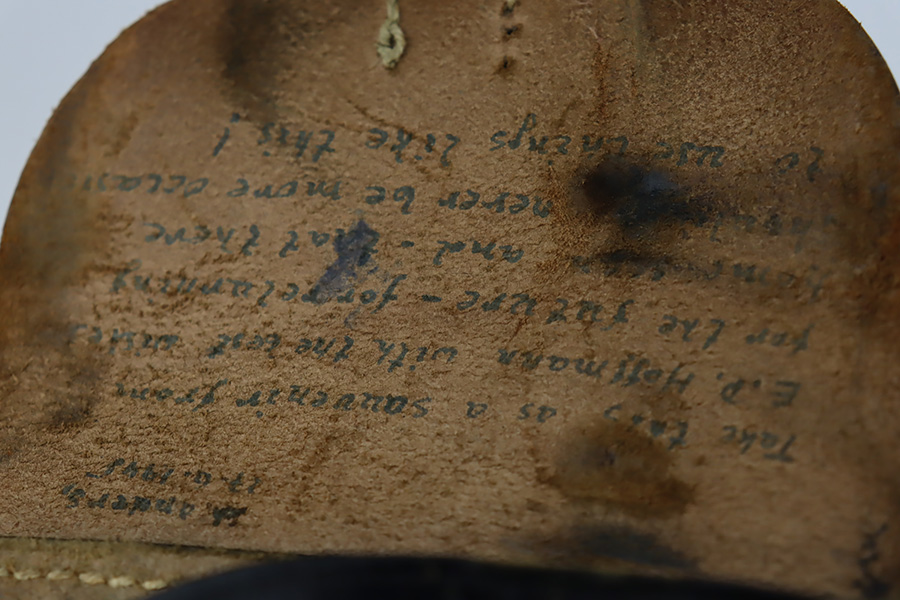 Take this as a souvenir from
E.P. Hoffmann with the best wishes
for the future - for returning
and - that there
never be more
to use things like this!